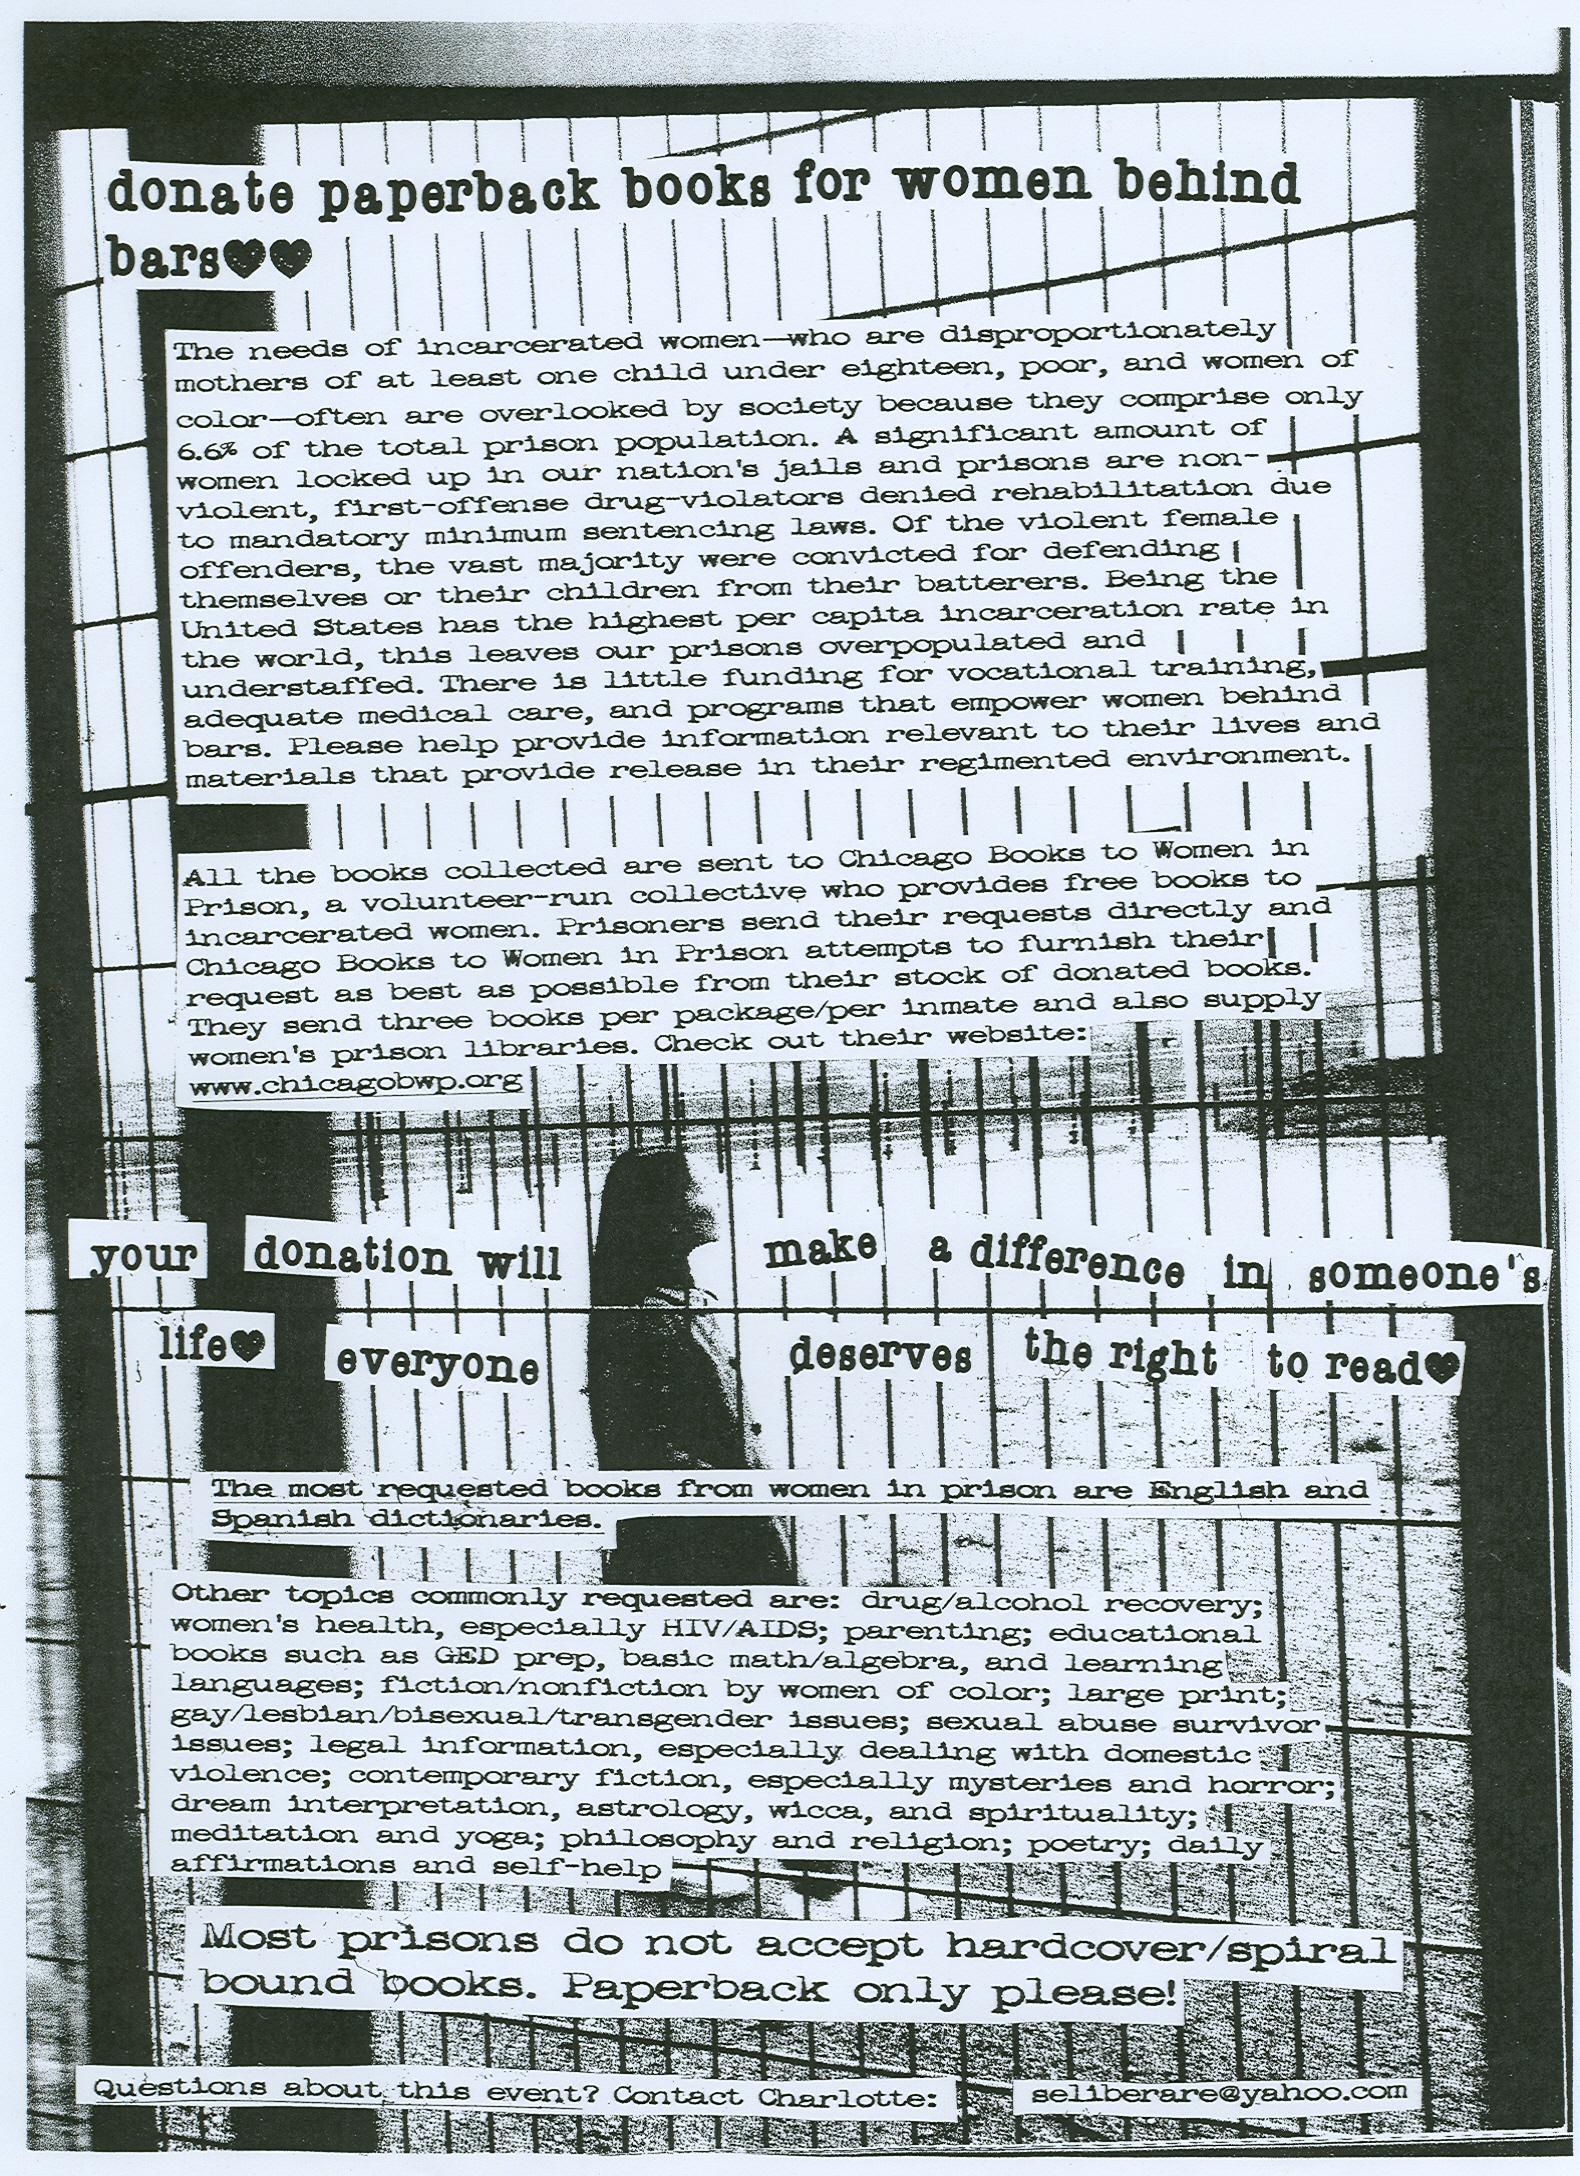 donate paperback books for women behind
bars♥♥
The needs of incarcerated women—who are disproportionately
mothers of at least one child under eighteen, poor, and women of
color—often are overlooked by society because they comprise only
6.6% of the total prison population. A significant amount of
women locked up in our nation's jails and prisons are non-
violent, first-offense drug-violators denied rehabilitation due
to mandatory minimum sentencing laws. Of the violent female
offenders, the vast majority were convicted for defending
themselves or their children from their batterers. Being the
United States has the highest per capita incarceration rate in
the world, this leaves our prisons overpopulated and
understaffed. There is little funding for vocational training,
adequate medical care, and programs that empower women behind
bars. Please help provide information relevant to their lives and
materials that provide release in their regimented environment.
All the books collected are sent to Chicago Books to Women in
Prison, a volunteer-run collective who provides free books to
incarcerated women. Prisoners send their requests directly and
Chicago Books to Women in Prison attempts to furnish their
request as best as possible from their stock of donated books.
They send three books per package/per inmate and also supply
women's prison libraries. Check out their website:
www.chicagobwp.org
your donation will make a difference in someone's
life♥ everyone deserves the right to read♥
The most requested books from women in prison are English and
Spanish dictionaries.
Other topics commonly requested are: drug/alcohol recovery;
women's health, especially HIV/AIDS; parenting; educational
books such as GED prep, basic math/algebra, and learning
languages; fiction/nonfiction by women of color; large print;
gay/lesbian/bisexual/transgender issues; sexual abuse survivor
issues; legal information, especially dealing with domestic
violence; contemporary fiction, especially mysteries and horror;
dream interpretation, astrology, wicca, and spirituality;
meditation and yoga; philosophy and religion; poetry; daily
affirmations and self-help
Most prisons do not accept hardcover/spiral
bound books. Paperback only please!
Questions about this event? Contact Charlotte: seliberare@yahoo.com